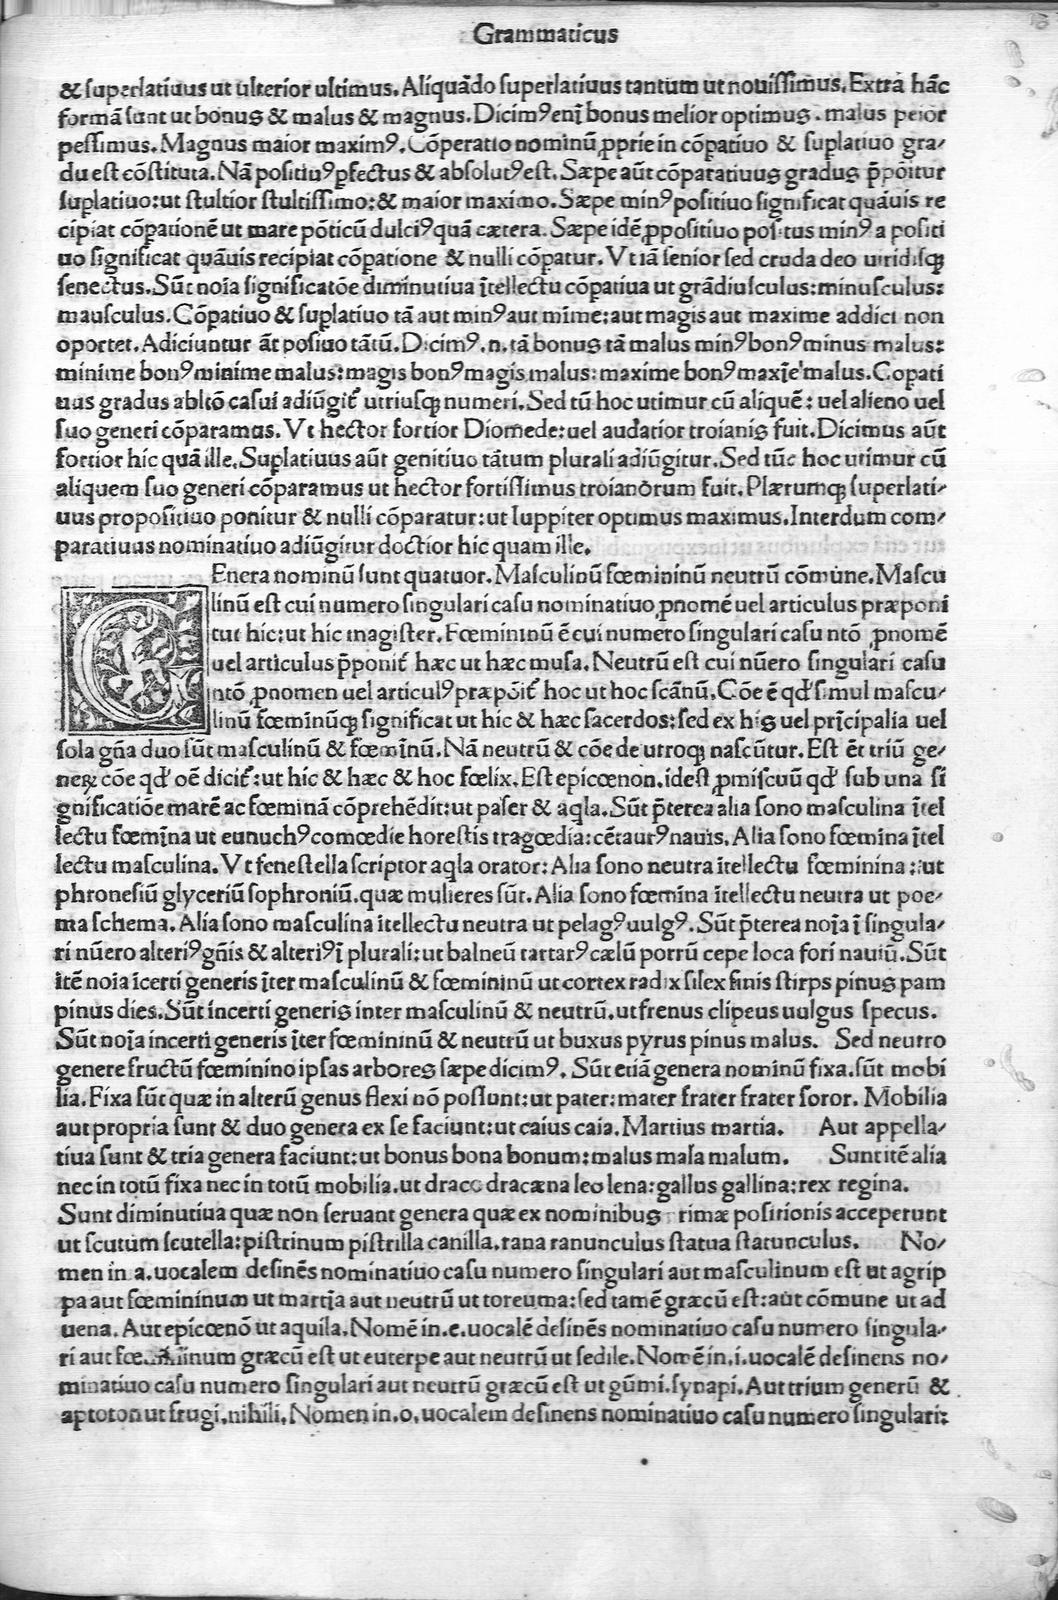 Grammaticus
& ſuperlatiuus ut ulterior ultimus. Aliquādo ſuperlatiuus tantum ut nouiſſimus. Extra hāc
formā ſunt ut bonus & malus & magnus. Dicimꝰ eni̅ bonus melior optimus. malus peior
peſſimus. Magnus maior maximꝰ. Cōperatio nominū ꝓprie in cōpatiuo & ſuplatiuo gra/
du eſt cōſtituta. Nā poſitiuꝰ pfectus & abſolutꝰ eſt. Sæpe aūt cōparatiuus gradus p̄pōitur
ſuplatiuo: ut ſtultior ſtultiſſimo: & maior maximo. Sæpe minꝰ poſitiuo ſignificat quāuis re
cipiat cōpationē ut mare pōticū dulciꝰ quā cætera. Sæpe idē ꝓpoſitiuo poſitus minꝰ a poſiti
uo ſignificat quāuis recipiat cōpatione & nulli cōpatur. Vt iā ſenior ſed cruda deo uiridiſqꝫ
ſenectus. Sūt noīa ſignificatōe diminutiua ītellectu cōpatiua ut grādiuſculus: minuſculus:
mauſculus. Cōpatiuo & ſuplatiuo tā aut minꝰ aut mīme: aut magis aut maxime addici non
oportet. Adiciuntur āt poſiuo tātū. Dicimꝰ. n. tā bonus tā malus minꝰ bonꝰ minus malus:
minime bonꝰ minime malus: magis bonꝰ magis malus: maxime bonꝰ maxīe malus. Copati
uus gradus abltō caſui adiūgit̄ utriuſqꝫ numeri. Sed tū hoc utimur cū aliquē: uel alieno uel
ſuo generi cōparamus. Vt hector fortior Diomede: uel audatior troianis fuit. Dicimus aūt
fortior hic quā ille. Suplatiuus aūt genitiuo tātum plurali adiūgitur. Sed tūc hoc utimur cū
aliquem ſuo generi cōparamus ut hector fortiſſimus troianorum fuit. Plærumqꝫ ſuperlati/
uus propoſitiuo ponitur & nulli cōparatur: ut Iuppiter optimus maximus. Interdum com/
paratiuus nominatiuo adiūgitur doctior hic quam ille.
Enera nominū ſunt quatuor. Maſculinū fœmininū neutrū cōmune. Maſcu
linū eſt cui numero ſingulari caſu nominatiuo ꝓnomē uel articulus præponi
tur hic: ut hic magiſter. Fœmininū ē cui numero ſingulari caſu ntō ꝓnomē
uel articulus p̄ponit̄ hæc ut hæc muſa. Neutrū eſt cui nūero ſingulari caſu
ntō ꝓnomen uel articulꝰ præpōit̄ hoc ut hoc ſcānū. Cōe ē qd' ſimul maſcu/
linū fœminūqꝫ ſignificat ut hic & hæc ſacerdos: ſed ex his uel prīcipalia uel
ſola gn̄a duo ſūt maſculinū & fœmīnū. Nā neutrū & cōe de utroqꝫ naſcūtur. Eſt ēt triū ge/
neꝝ cōe qd' oē dicit̄: ut hic & hæc & hoc fœlix. Eſt epicœnon. ideſt ꝓmiſcuū qd' ſub una ſi
gnificatiōe marē ac fœminā cōprehēdit: ut paſer & aqla. Sūt p̄terea alia ſono maſculina ītel
lectu fœmīna ut eunuchꝰ comœdie horeſtis tragœdia: cētaurꝰ nauis. Alia ſono fœmina ītel
lectu maſculina. Vt feneſtella ſcriptor aqla orator: Alia ſono neutra ītellectu fœminina: ut
phroneſiū glyceriū ſophroniū. quæ mulieres ſūt. Alia ſono fœmina ītellectu neutra ut poe/
ma ſchema. Alia ſono maſculina ītellectu neutra ut pelagꝰ uulgꝰ. Sūt p̄terea noīa ī ſingula/
ri nūero alteriꝰ gn̄is & alteriꝰ ī plurali: ut balneū tartarꝰ cælū porrū cepe loca fori nauiū. Sūt
itē noīa īcerti generis īter maſculinū & fœmininū ut cortex radix ſilex finis ſtirps pinus pam
pinus dies. Sūt incerti generis inter maſculinū & neutrū. ut frenus clipeus uulgus ſpecus.
Sūt noīa incerti generis īter fœmininū & neutrū ut buxus pyrus pinus malus. Sed neutro
genere fructū fœminino ipſas arbores ſæpe dicimꝰ. Sūt etiā genera nominū fixa. ſūt mobi
lia. Fixa ſūt quæ in alterū genus flexi nō poſſunt: ut pater: mater frater frater ſoror. Mobilia
aut propria ſunt & duo genera ex ſe faciunt: ut caius caia. Martius martia. Aut appella/
tiua ſunt & tria genera faciunt: ut bonus bona bonum: malus mala malum. Sunt itē alia
nec in totū fixa nec in totū mobilia. ut draco dracæna leo lena: gallus gallina: rex regina.
Sunt diminutiua quæ non ſeruant genera quæ ex nominibus rimæ poſitionis acceperunt
ut ſcutum ſcutella: piſtrinum piſtrilla canilla. rana ranunculus ſtatua ſtatunculus. No/
men in. a. uocalem deſinēs nominatiuo caſu numero ſingulari aut maſculinum eſt ut agrip
pa aut fœmininum ut martia aut neutrū ut toreuma: ſed tamē græcū eſt: aut cōmune ut ad
uena. Aut epicœnō ut aquila. Nomē in. e. uocalē deſinēs nominatiuo caſu numero ſingula/
ri aut inum græcū eſt ut euterpe aut neutrū ut ſedile. Nomē in. i. uocalē deſinens no/
minatiuo caſu numero ſingulari aut neutrū græcū eſt ut gūmi. ſynapi. Aut trium generū &
aptoton ut frugi. nihili. Nomen in. o. uocalem deſinens nominatiuo caſu numero ſingulari: